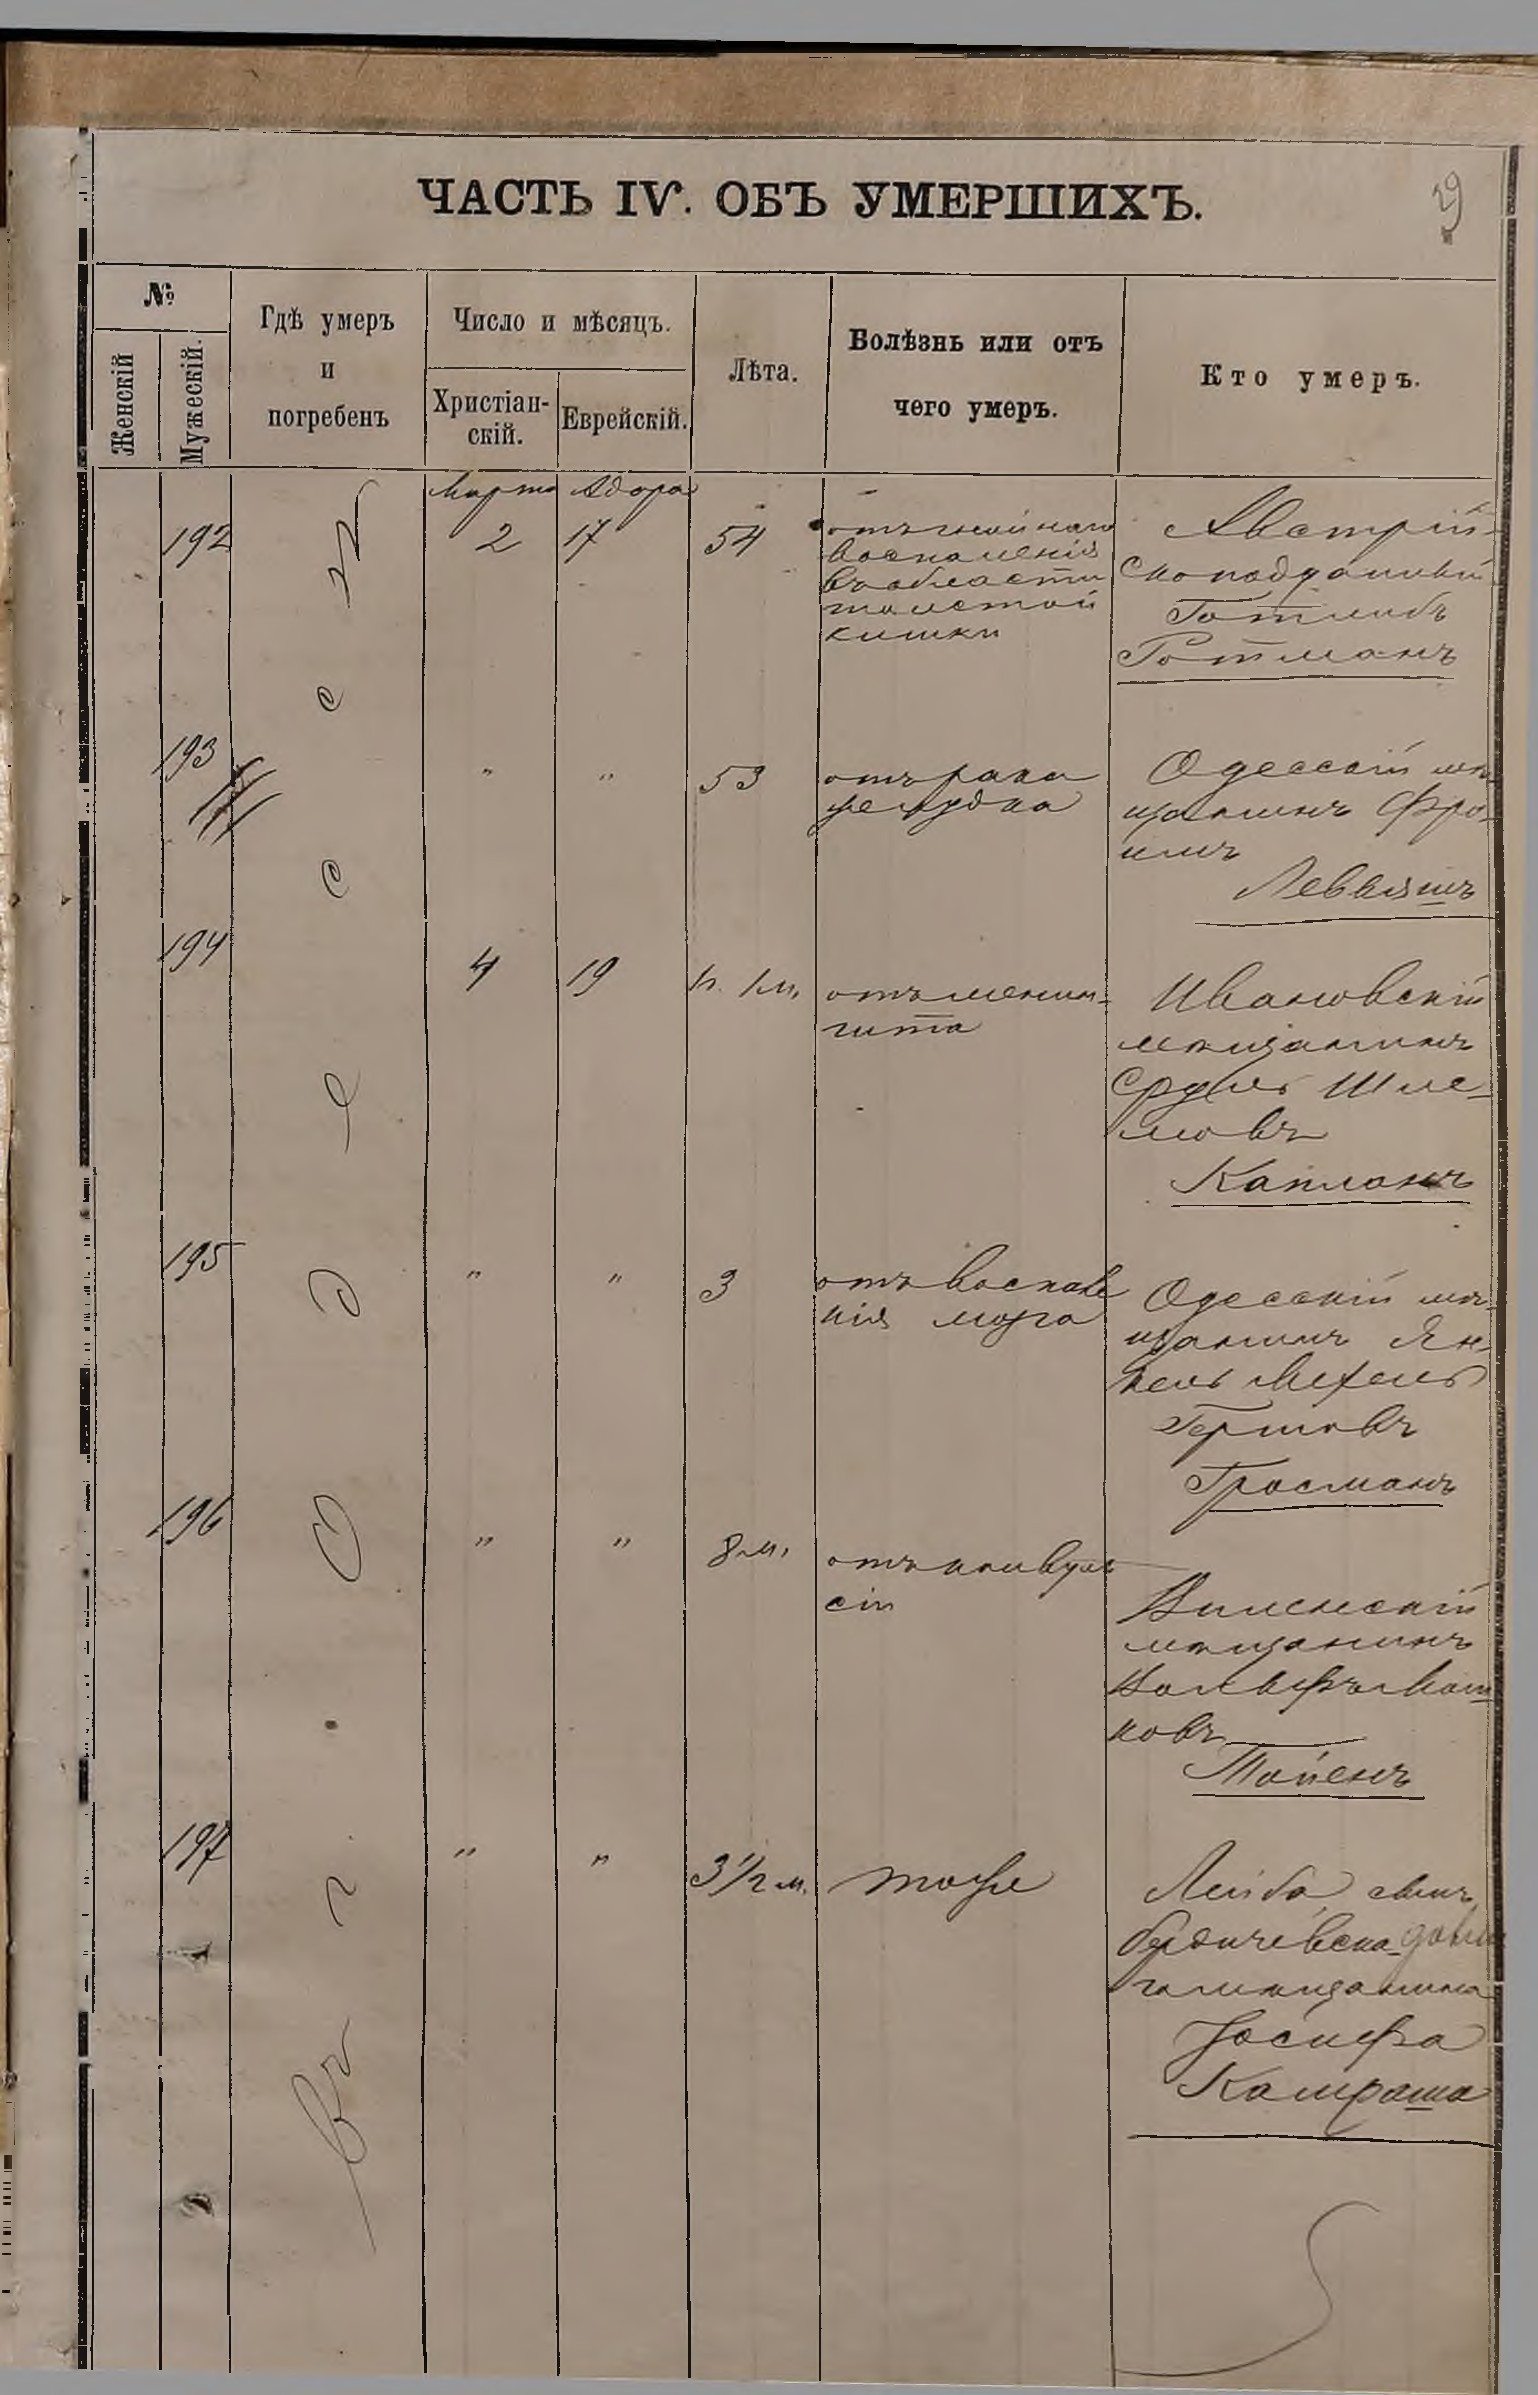 29
ЧАСТЬ IV. ОБЪ УМЕРШИХЪ.
№
Женскій
Мужескій.
Гдѣ умеръ
и
погребенъ
Число и мѣсяцъ.
Христіан-
скій.
Еврейскій.
Лѣта.
Болѣзнь или отъ
чего умеръ.
Кто умеръ.
Въ г. Одессѣ
Марта Адара
192 2 17 54
отъ гнойнаго
воспаленія
въ области
толстой
кишки
Австрій-
скоподданный
Готлибъ
Ротманъ
193 " " 53
отъ рака
желудка
Одесскій мѣ-
щанинъ Фро-
имъ
194 4 19 1 г. 1 м.
отъ менин-
гита
Ивановскій
мѣщанинъ
Сруль Шле-
мовъ
Капланъ
195 " " 3
отъ воспале
нія мозга
Одесскій мѣ-
щанинъ Ян-
кель Мехель
Гершовъ
Гросманъ
196 " " 8 м.
отъ конвуль
сіи
Виленскій
мѣщанинъ
Вольфъ
ковъ
197 " " 3 1/2 м.
тоже
Лейба сынъ
бердичевска-
го мѣщанина
Іосифа